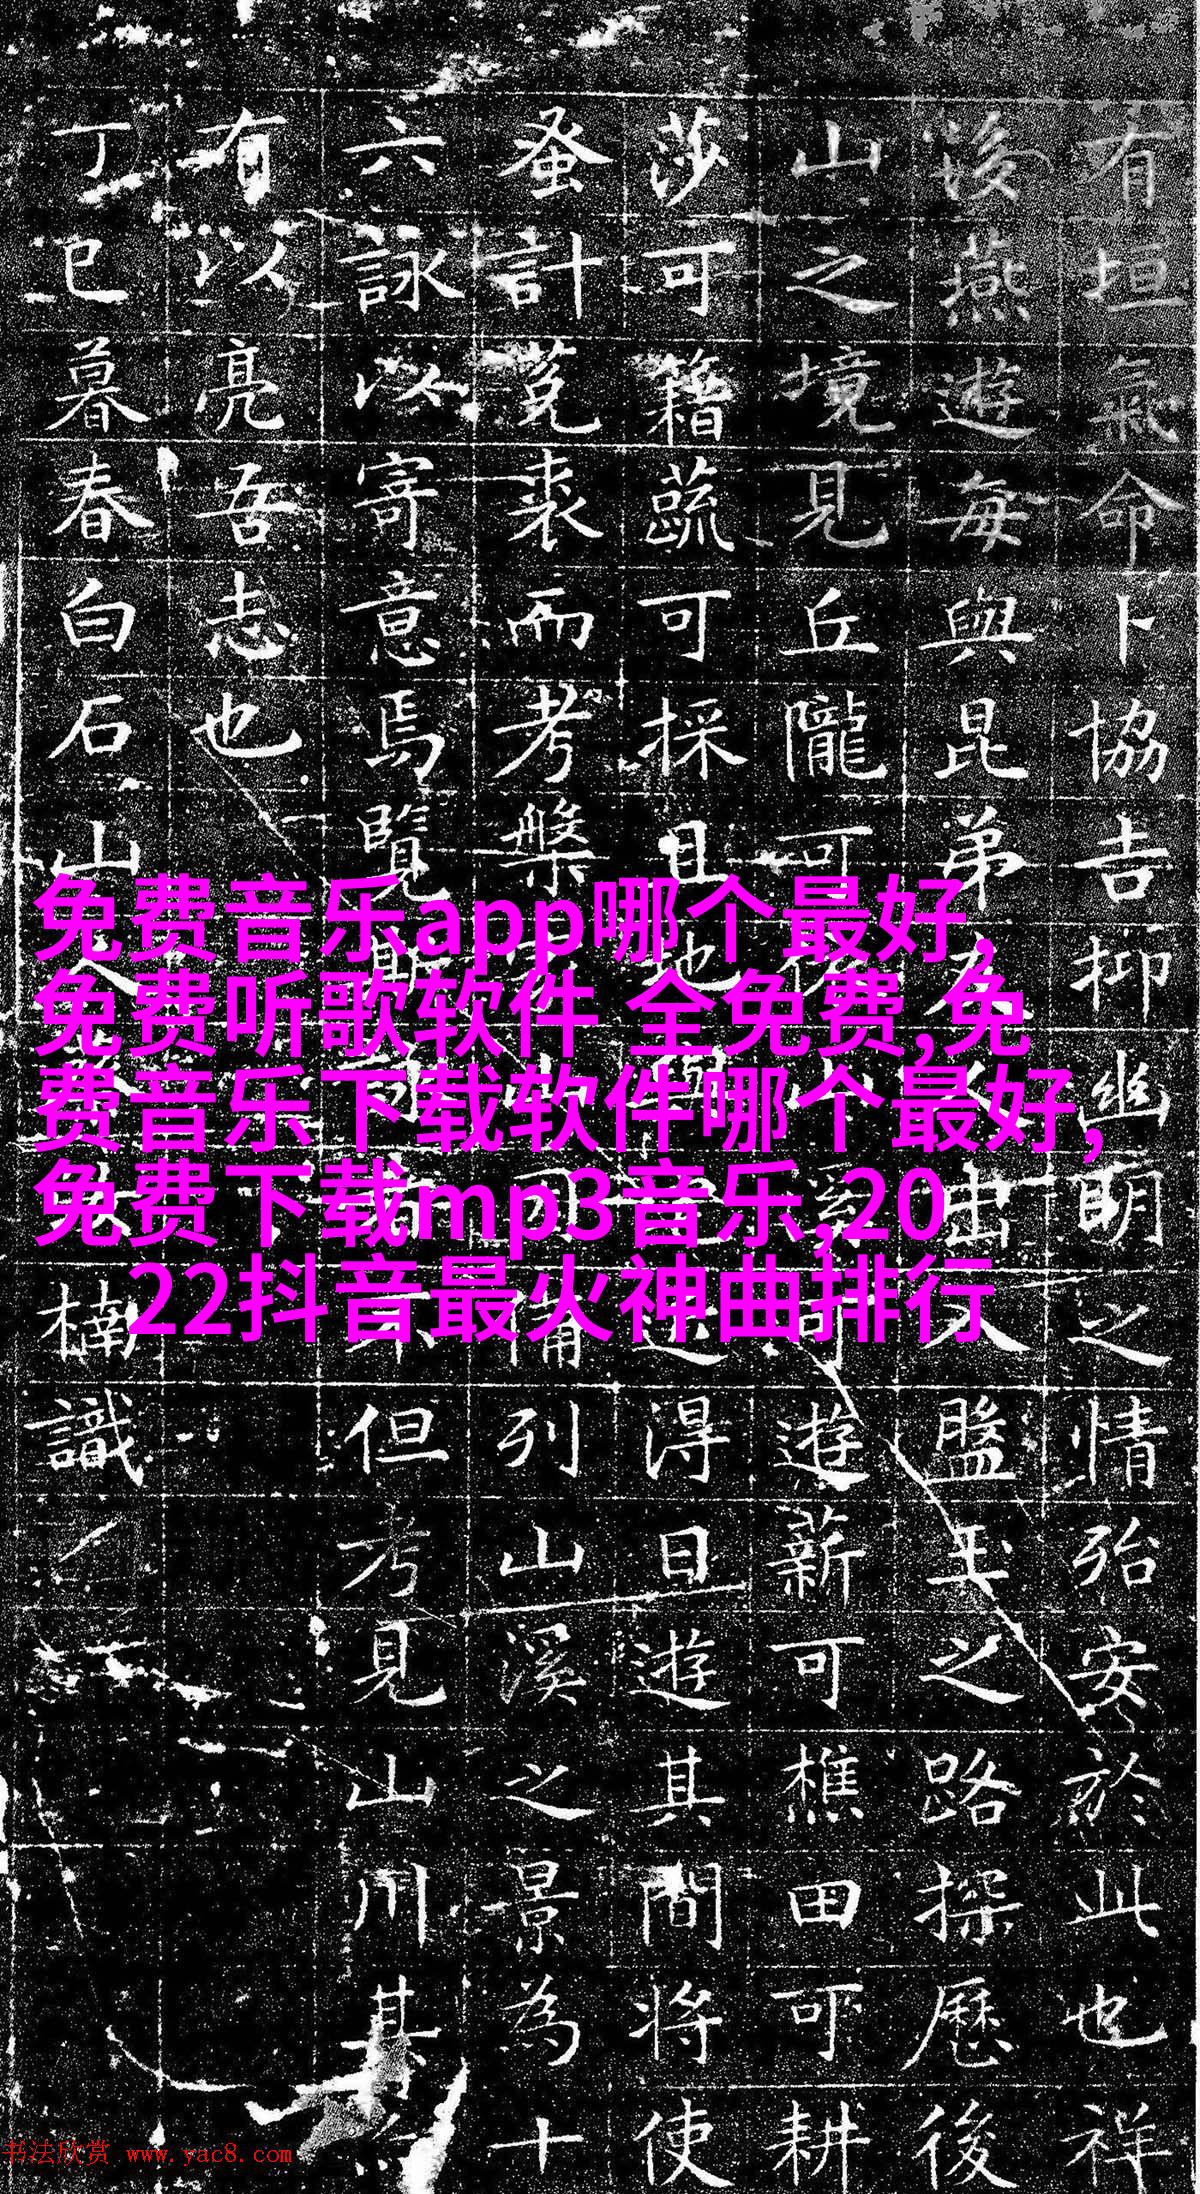 有垣氣命卜協吉抑幽明之情殆安於此也祥
燕遊每與昆弟出入盤玉之路探歷後
山之境見丘隴可可遊薪可樵田可耕
莎可藉蔬可採且地得日遊其間將使
蚤計菟裘而考槃備列山溪之景為十
六詠以寄意焉覽斯但考見山川其
有以亮吾志也
丁巳暮春白石山人楠識
免费音乐app哪个最好,
免费听歌软件 全免费,免
费音乐下载软件哪个最好,
免费下载mp3音乐,20
22抖音最火神曲排行
书法欣赏 www.yac8.com